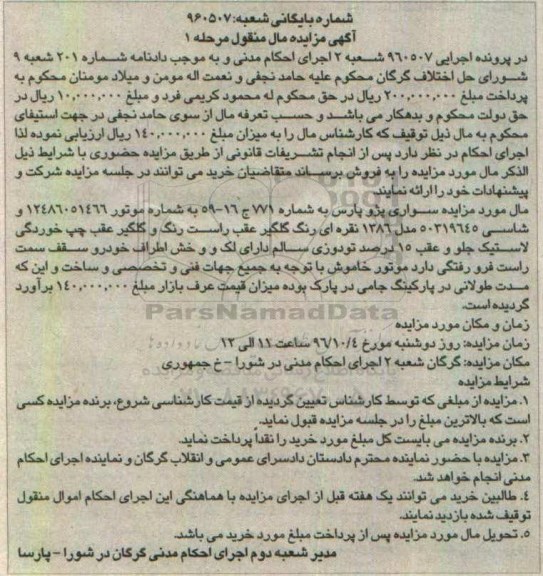 شماره بایگانی شعبه: ۹۶۰۵۰۷
آگهی مزایده مال منقول مرحله ۱
در پرونده اجرایی ۹۶۰۵۰۷ شعبه ۲ اجرای احکام مدنی و به موجب دادنامه شماره ۲۰۱ شعبه ۹
شورای حل اختلاف گرگان محکوم علیه حامد نجفی و نعمت اله مومن و میلاد مومنان محکوم به
پرداخت مبلغ ۲۰۰,۰۰۰,۰۰۰ ریال در حق محکوم له محمود کریمی فرد و مبلغ ۱۰,۰۰۰,۰۰۰ ریال در
حق دولت محکوم و بدهکار می باشد و حسب تعرفه مال از سوی حامد نجفی در جهت استیفای
محکوم به مال ذیل توقیف که کارشناس مال را به میزان مبلغ ۱۴۰,۰۰۰,۰۰۰ ریال ارزیابی نموده لذا
اجرای احکام در نظر دارد پس از انجام تشریفات قانونی از طریق مزایده حضوری با شرایط ذیل
الذکر مال مورد مزایده را به فروش برساند متقاضیان خرید می توانند در جلسه مزایده شرکت و
پیشنهادات خود را ارائه نمایند
مال مورد مزایده سواری پژو پارس به شماره ۷۷۱ ج ۱۶-۵۹ به شماره موتور ۱۲۴۸۶۰۵۱۴۶۶ و
شاسی ۵۰۳۱۹۶۴۵ مدل ۱۳۸۶ نقره ای رنگ گلگیر عقب راست رنگ و گلگیر عقب چپ خوردگی
لاستیک جلو و عقب ۱۵ درصد تودوزی سالم دارای لک و و خش اطراف خودرو سقف سمت
راست فرو رفتگی دارد موتور خاموش با توجه به جمیع جهات فنی و تخصصی و ساخت و این که
مدت طولانی در پارکینگ جامی در پارک بوده میزان قیمت عرف بازار مبلغ ۱۴۰,۰۰۰,۰۰۰ برآورد
گردیده است.
ParsNamadData
زمان و مکان مورد مزایده
زمان مزایده: روز دوشنبه مورخ ۹۶/۱۰/۴ ساعت ۱۱ الی ۱۲
مکان مزایده: گرگان شعبه ۲ اجرای احکام مدنی در شورا - خ جمهوری
شرایط مزایده
۱. مزایده از مبلغی که توسط کارشناس تعیین گردیده از قیمت کارشناسی شروع، برنده مزایده کسی
است که بالاترین مبلغ را در جلسه مزایده قبول نماید.
۲. برنده مزایده می بایست کل مبلغ مورد خرید را نقداً پرداخت نماید.
۳. مزایده با حضور نماینده محترم دادستان دادسرای عمومی و انقلاب گرگان و نماینده اجرای احکام
مدنی انجام خواهد شد.
۴. طالبین خرید می توانند یک هفته قبل از اجرای مزایده با هماهنگی این اجرای احکام اموال منقول
توقیف شده بازدید نمایند.
۵. تحویل مال مورد مزایده پس از پرداخت مبلغ مورد خرید می باشد.
مدیر شعبه دوم اجرای احکام مدنی گرگان در شورا - پارسا